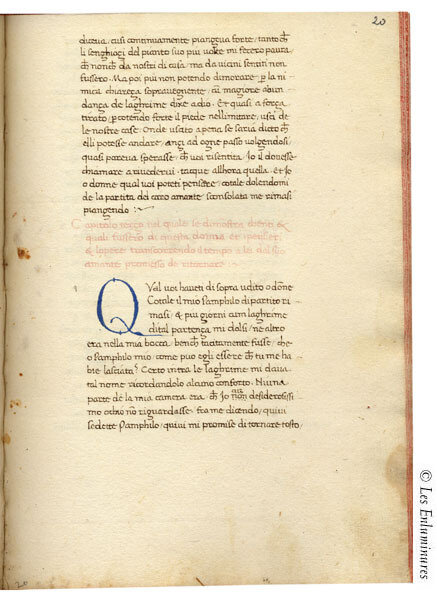 20
diceva, cusi continuamente piangeva forte, tanto ch̄
li senghioçi del pianto suo piu volte mi fecero paura,
ch̄ nonch̄ da nostri di casa, ma da vicini sentiti non
fusero. Ma poi piu non potendo dimorare p la ni
mica chiareça sopravegnente, cū magiore abun
dança de laghrime dixe adio. Et quasi a força
tirato, pcotendo forte il piede nellimitare, usci de
le nostre case. Onde uscito apena se saria dicto ch̄
elli potesse andare, ançi ad ogne passo volgendosi
quasi pareva sperasse, ch̄ voi risentita, Io il dovesse
chiamare a rivedervi. taque allhora quella. et Io
o donne qual voi poteti pensere, cotale dolendomi
de la partita del caro amante sconsolata me rimasi
piangendo
Capitolo terço nel quale se demostra chenti &
quali fussero di questa donna et penseri,
& lopere transcorrendo il tempo a lei dal suo
amante promesso de ritornare
Qual voi haveti di sopra udito o dōne
Cotale il mio Pamphilo dipartito ri
masi, & piu giorni cum laghrime
di tal partença mi dolsi, ne altro
era nella mia bocca, bench̄ tacitamente fusse, che
o Pamphilo mio, come puo egli essere ch̄ tu me ha
bie lasciata? Certo intra le laghrime mi dava
tal nome ricordandolo alcuno conforto. Niuna
parte de la mia camera era ch̄ Io desiderosissi
mo othio nō riguardasse, fra me dicendo, quivi
sedette Pamphilo, quivi mi promise di tornare tosto
20
© Les Enluminures